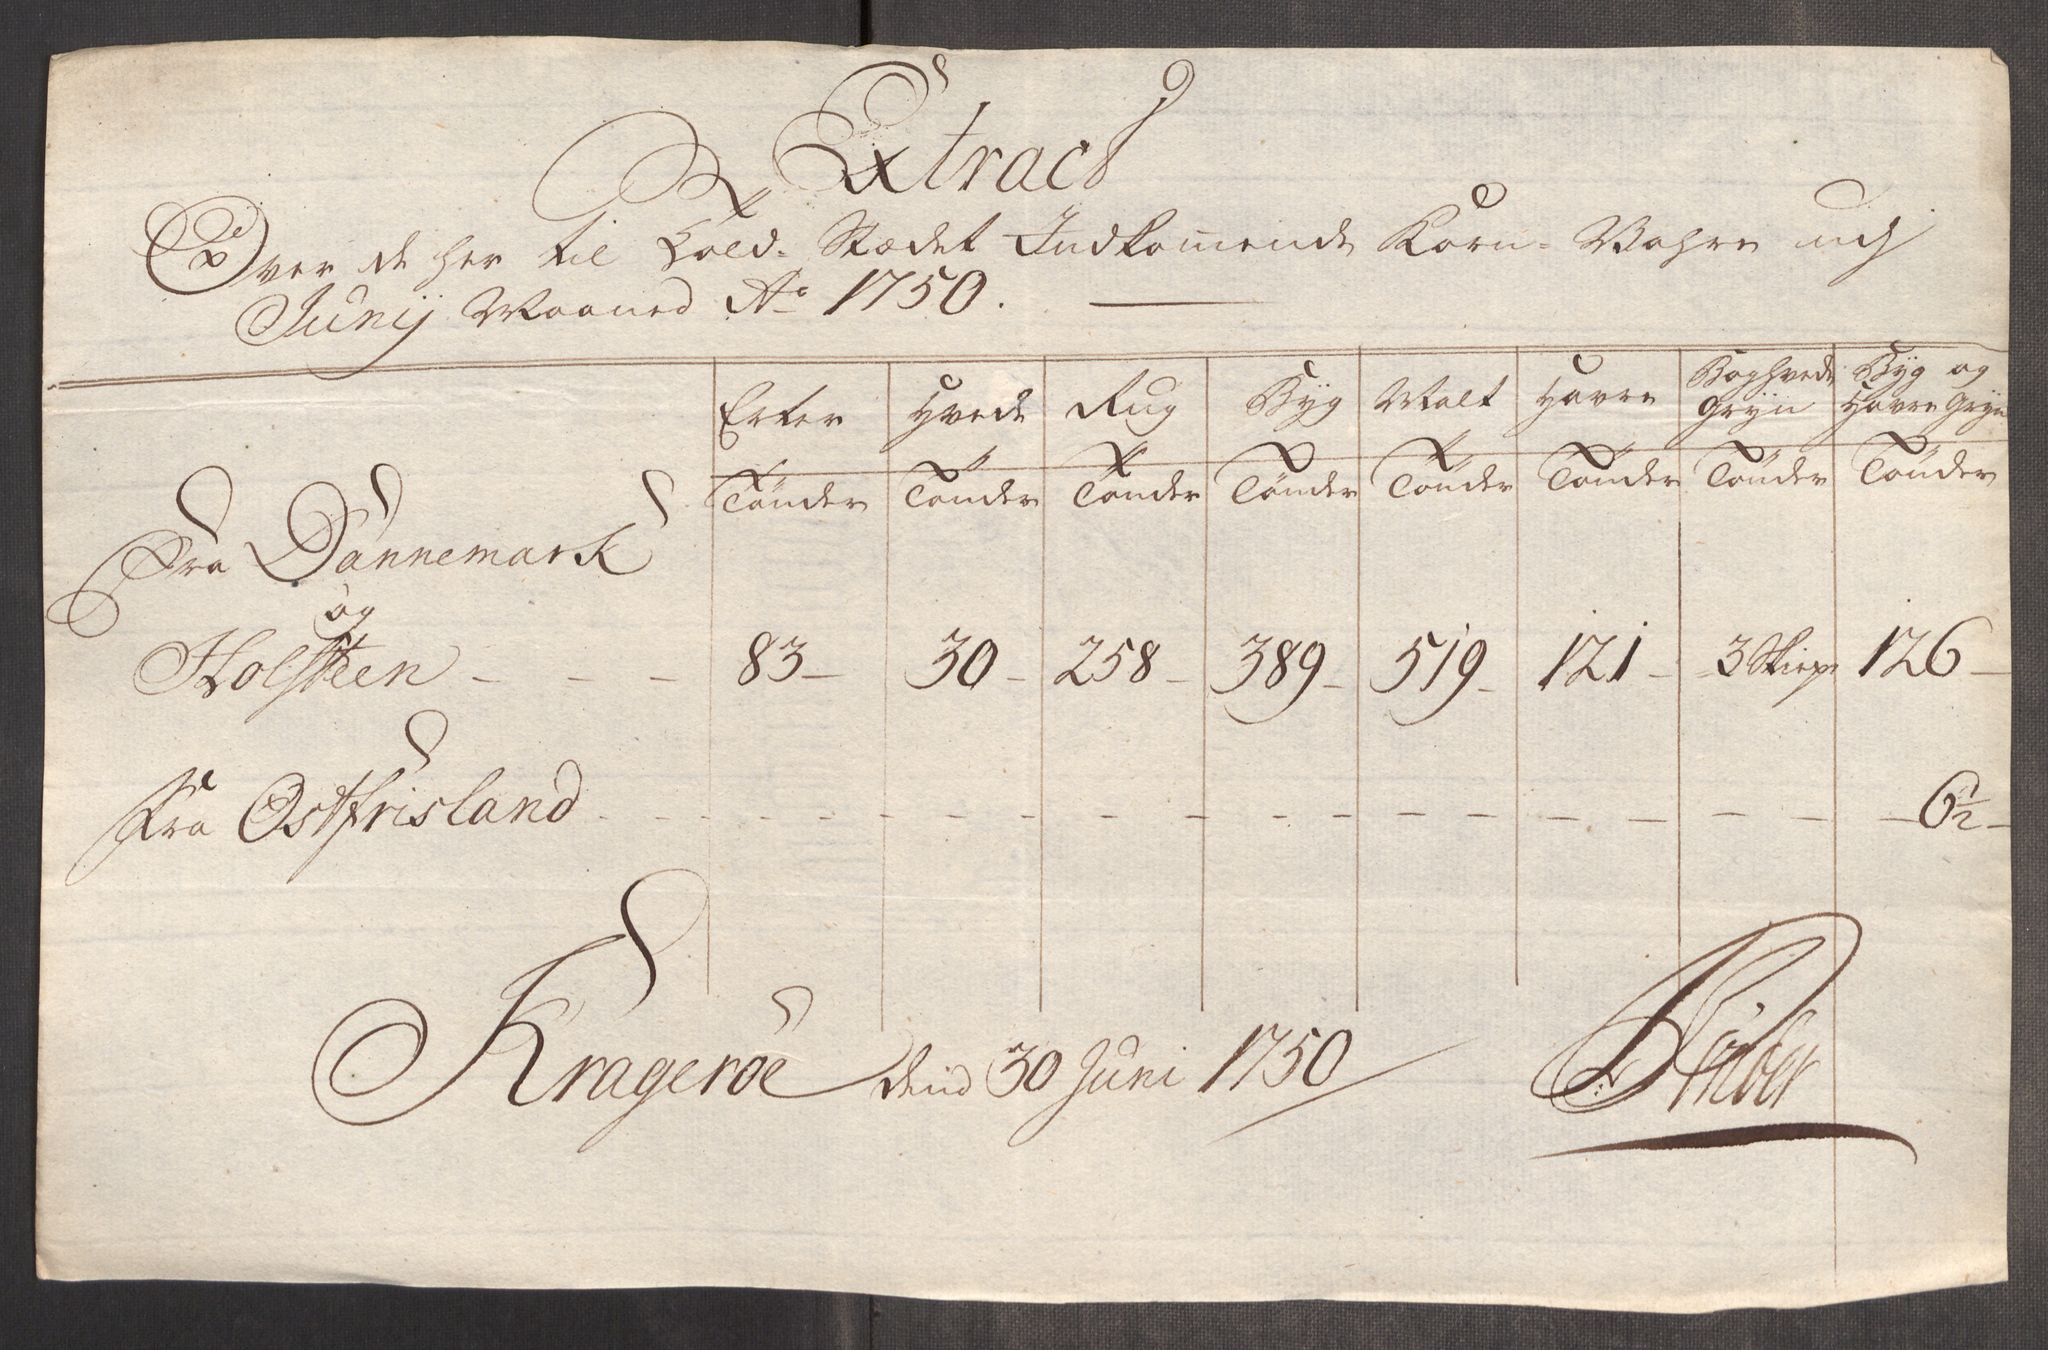 Extract
Over de her til Told-Stædet Indkommende Korn-Wahre udj
Junij Maaned Ao 1750.
Erter Hvede Rug Byg Malt Havre Boghvede Gryn Byg og Havre Gryn
Tønder Tønder Tønder Tønder Tønder Tønder Tønder Tønder
Fra Dannemark
og
Holsteen - - - 83 - 30 - 258 - 389 - 519 - 121 - 3 Skiep 126 -
Fra Ostfrisland - - - 6½ -
Kragerøe dend 30 Juni 1750